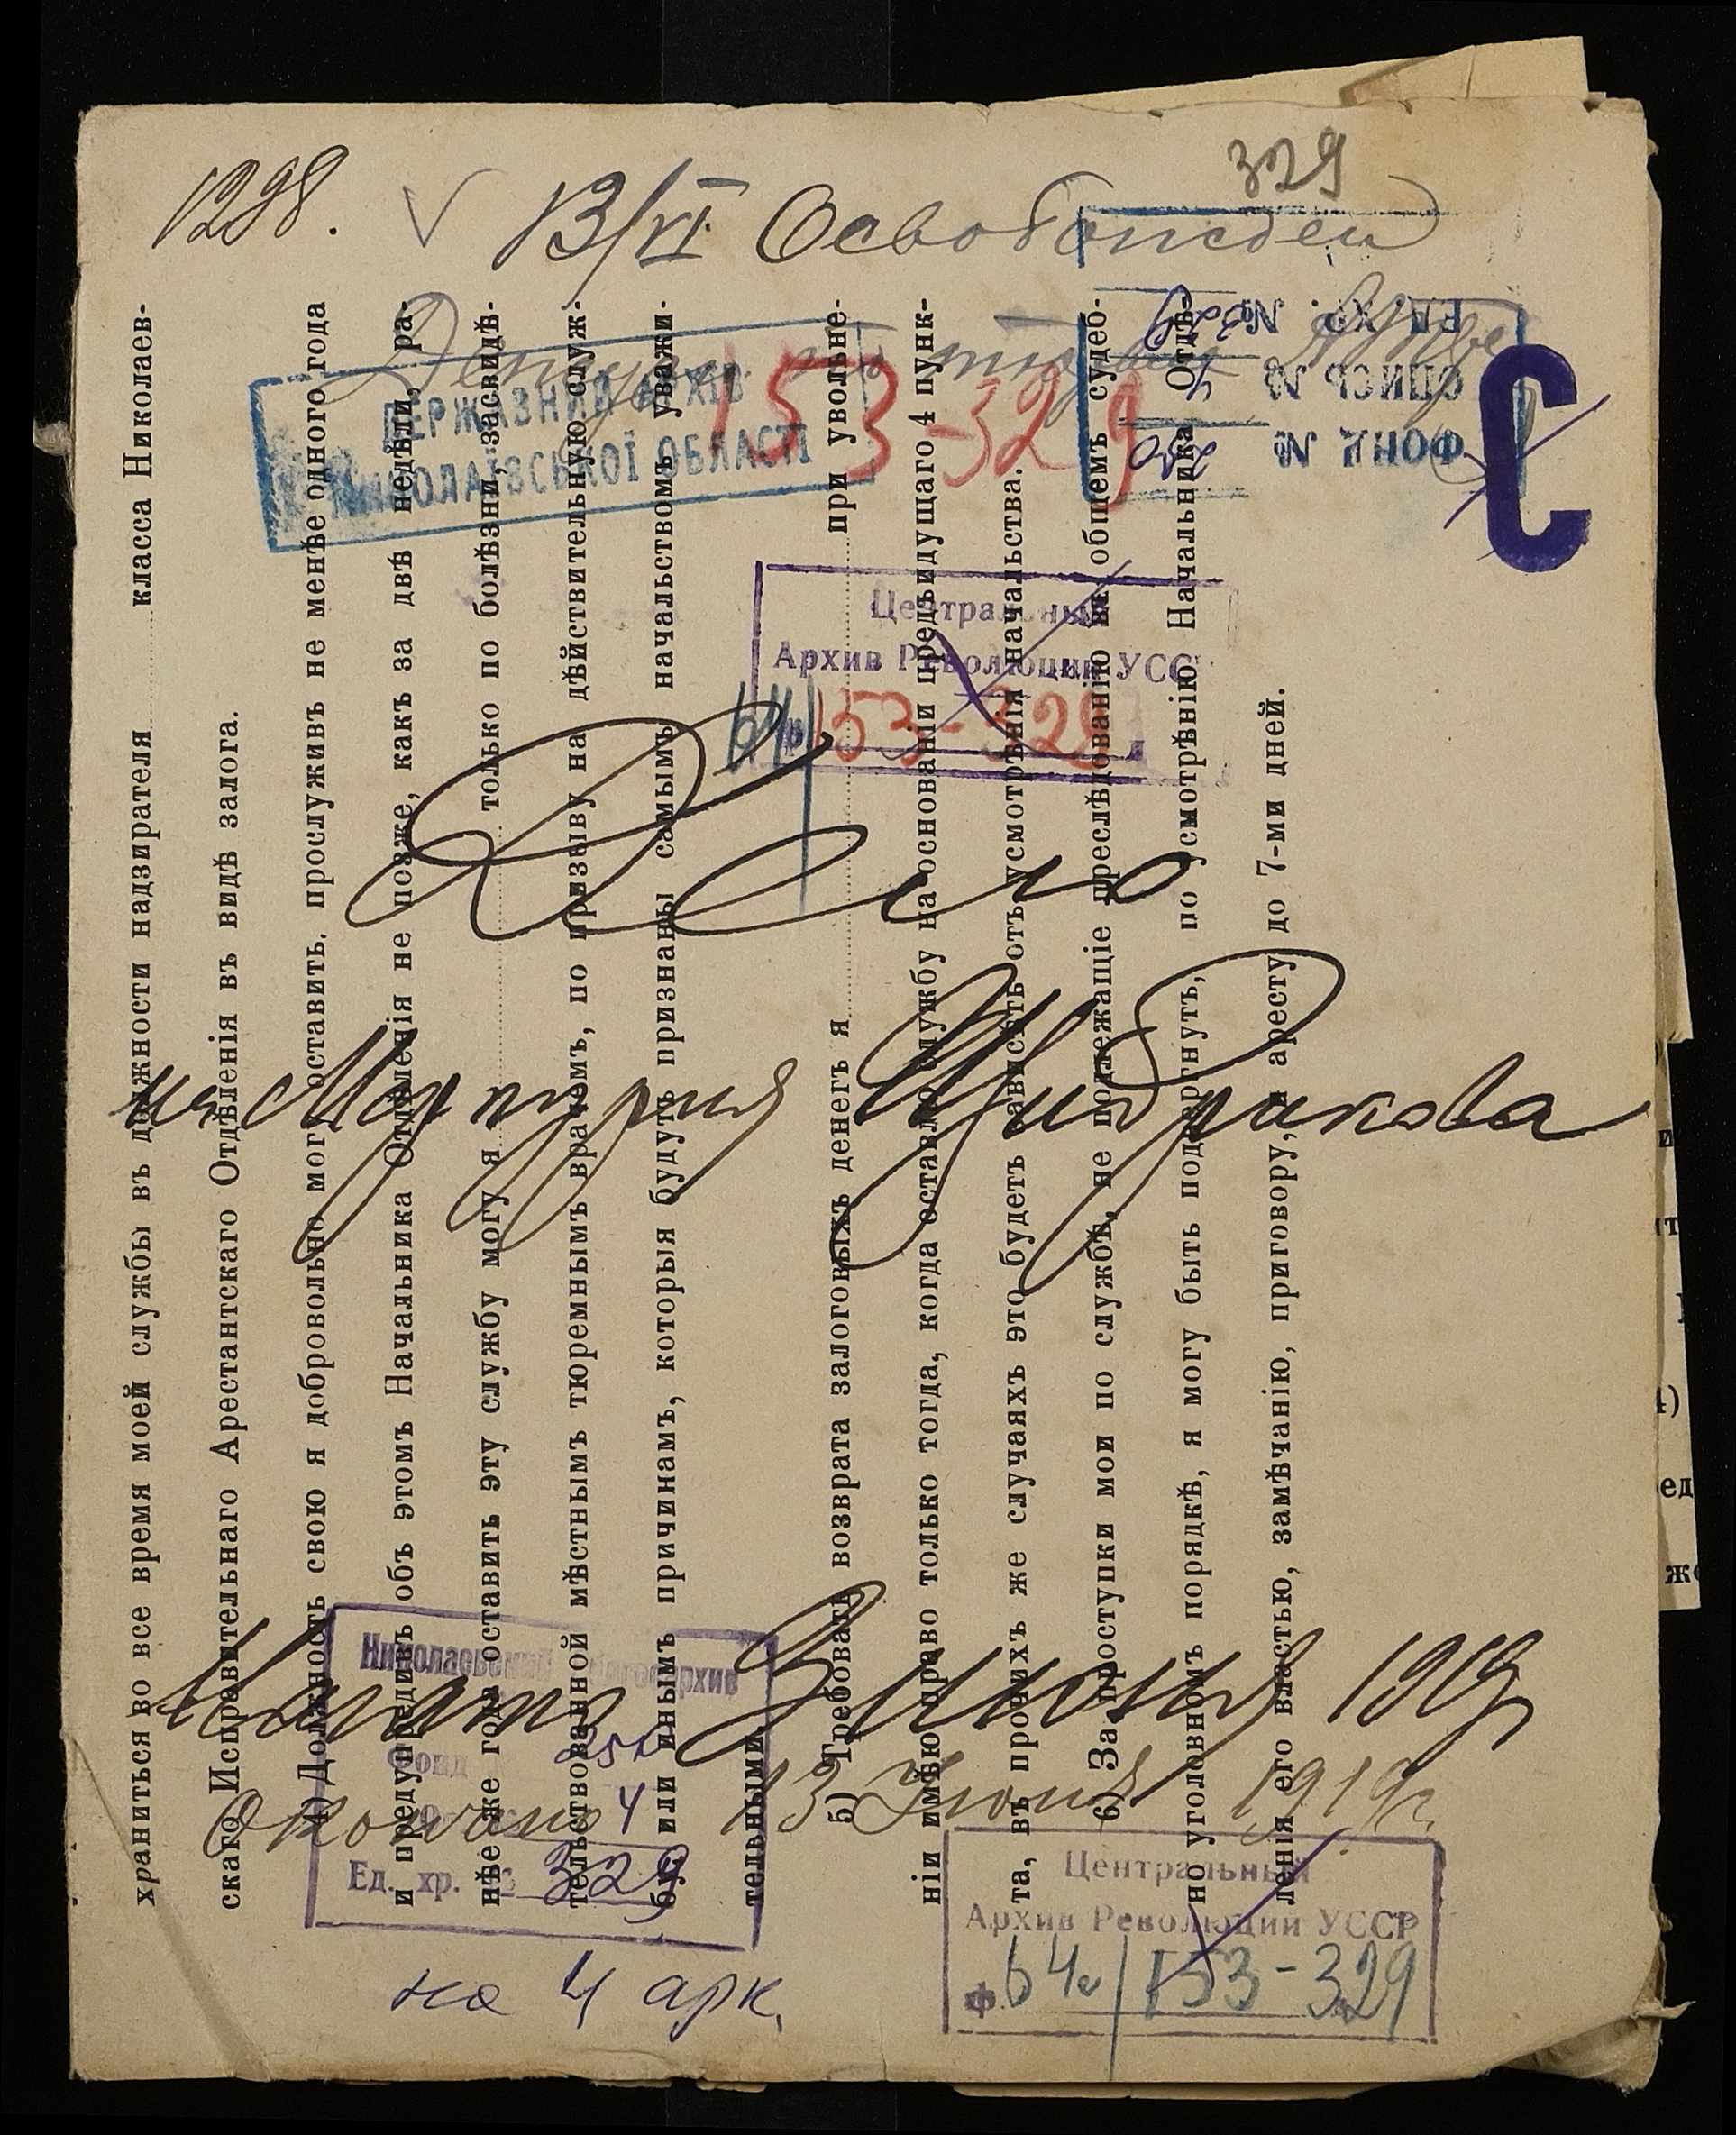 329
1298.
13/VI Освобожден
ДЕРЖАВНИЙ АРХІВ
МИКОЛАЇВСЬКОЇ ОБЛАСТІ
153-329
ФОНД № 250
ОПИСЬ № 4
ЕД. ХР. № 329
С
Центральный
Архив Революции УССР
64 153-329
Дело
Начато 3 июня 1919
Окончено 13 Июня 1919 г.
Николаевский
Фонд
4
Ед. хр. 329
Центральный
Архив Революции УССР
ф. 64 153-329
на 4 арк.
храниться во все время моей службы въ должности надзирателя класса Николаев-
скаго Исправительнаго Арестантскаго Отдѣленія въ видѣ залога.
4) Должность свою я добровольно могу оставить, прослуживъ не менѣе одного года
и предупредивъ объ этомъ Начальника Отдѣленія не позже, какъ за двѣ недѣли, ра-
нѣе же года оставить эту службу могу я только по болѣзни, засвидѣ-
тельствованной мѣстнымъ тюремнымъ врачемъ, по призыву на дѣйствительную служ-
бу, или инымъ причинамъ, которыя будутъ признаны самымъ начальствомъ уважи-
тельными.
5) Требовать возврата залоговыхъ денегъ я при увольне-
ніи имѣю право только тогда, когда оставлю службу на основаніи предъидущаго 4 пунк-
та, въ прочихъ же случаяхъ это будетъ зависѣть отъ усмотрѣнія начальства.
6) За проступки мои по службѣ, не подлежащіе преслѣдованію въ общемъ судеб-
но уголовномъ порядкѣ, я могу быть подвергнутъ, по усмотрѣнію Начальника Отдѣ-
ленія его властью, замѣчанію, приговору, и аресту до 7-ми дней.